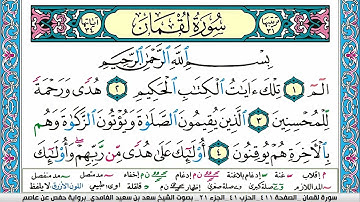 سُورَةُ لُقْمَانَ
بِسْمِ ٱللَّهِ ٱلرَّحْمَٰنِ ٱلرَّحِيمِ
الٓمٓ ١ تِلْكَ ءَايَٰتُ ٱلْكِتَٰبِ ٱلْحَكِيمِ ٢ هُدًى وَرَحْمَةً
لِّلْمُحْسِنِينَ ٣ ٱلَّذِينَ يُقِيمُونَ ٱلصَّلَوٰةَ وَيُؤْتُونَ ٱلزَّكَوٰةَ وَهُم
بِٱلْءَاخِرَةِ هُمْ يُوقِنُونَ ٤ أُو۟لَٰٓئِكَ عَلَىٰ هُدًى مِّن رَّبِّهِمْ وَأُو۟لَٰٓئِكَ
سورة لقمان الصفحة ٤١١ الجزء ٢١ بصوت الشيخ سعد بن سعيد الغامدي برواية حفص عن عاصم